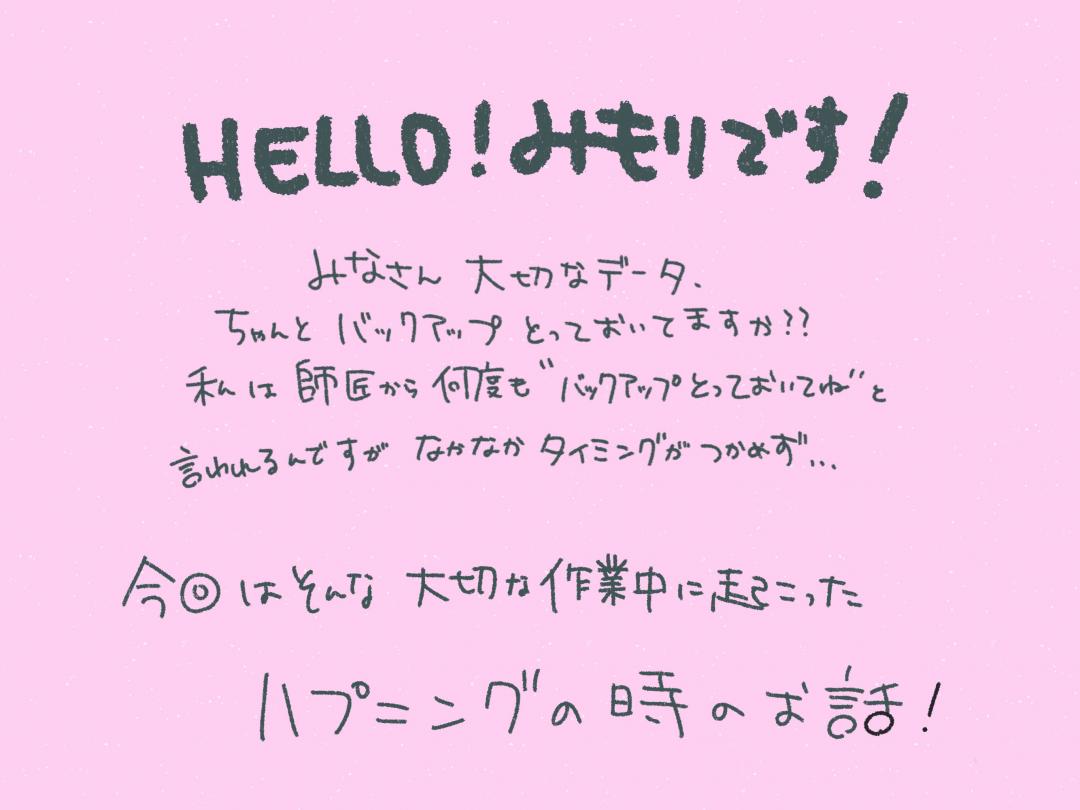 HELLO!みもりです!
みなさん 大切なデータ、
ちゃんと バックアップ とっておいてますか??
私は 師匠から 何度も"バックアップとっておいてね"と
言われるんですが なかなか タイミングが つかめず...
今回はそんな 大切な作業中に起こった
ハプニングの時のお話!